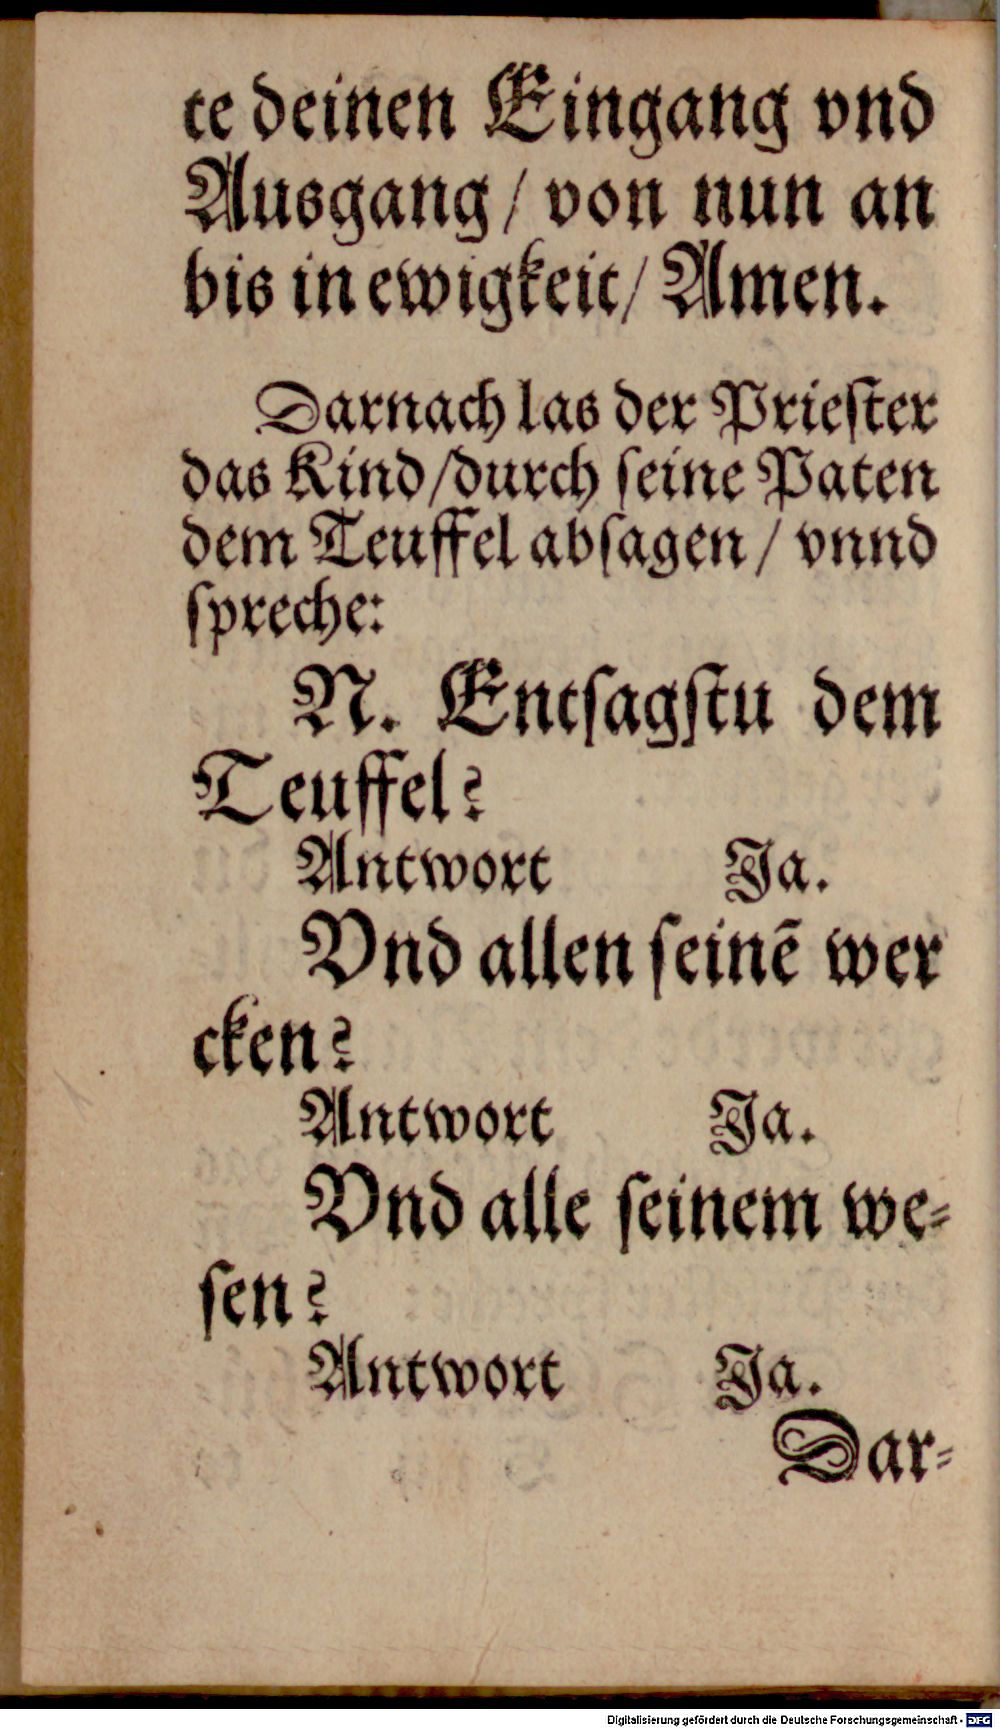 te deinen Eingang vnd
Ausgang / von nun an
bis in ewigkeit / Amen.
Darnach las der Prieſter
das Kind / durch ſeine Paten
dem Teuffel abſagen / vnnd
ſpreche:
N. Entſagſtu dem
Teuffel?
Antwort Ja.
Vnd allen ſeinẽ wer
cken?
Antwort Ja.
Vnd alle ſeinem we⸗
ſen?
Antwort Ja.
Dar⸗
Digitalisierung gefördert durch die Deutsche Forschungsgemeinschaft - DFG